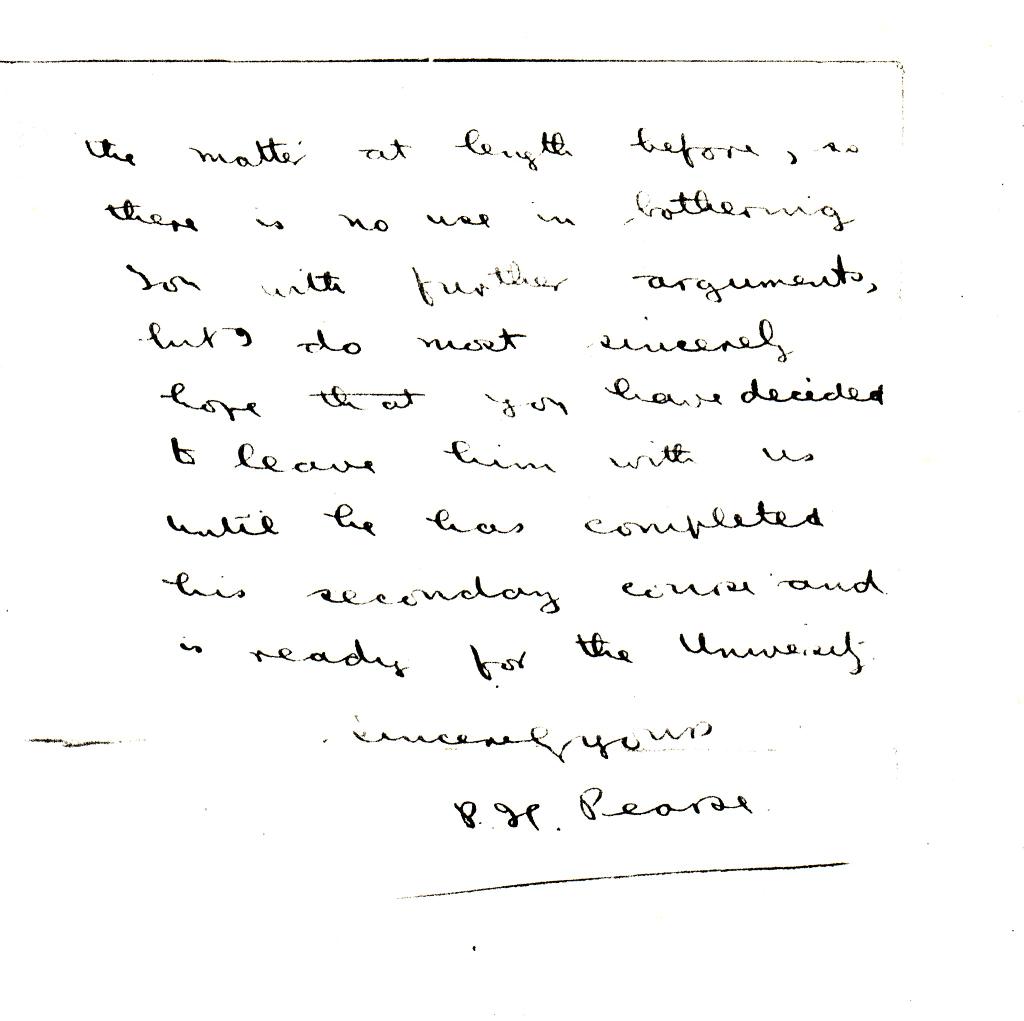 the matter at length before, so
there is no use in bothering
you with further arguments,
but I do most sincerely
hope that you have decided
to leave him with us
until he has completed
his secondary course and
is ready for the University.
Sincerely yours
P. H. Pearse.